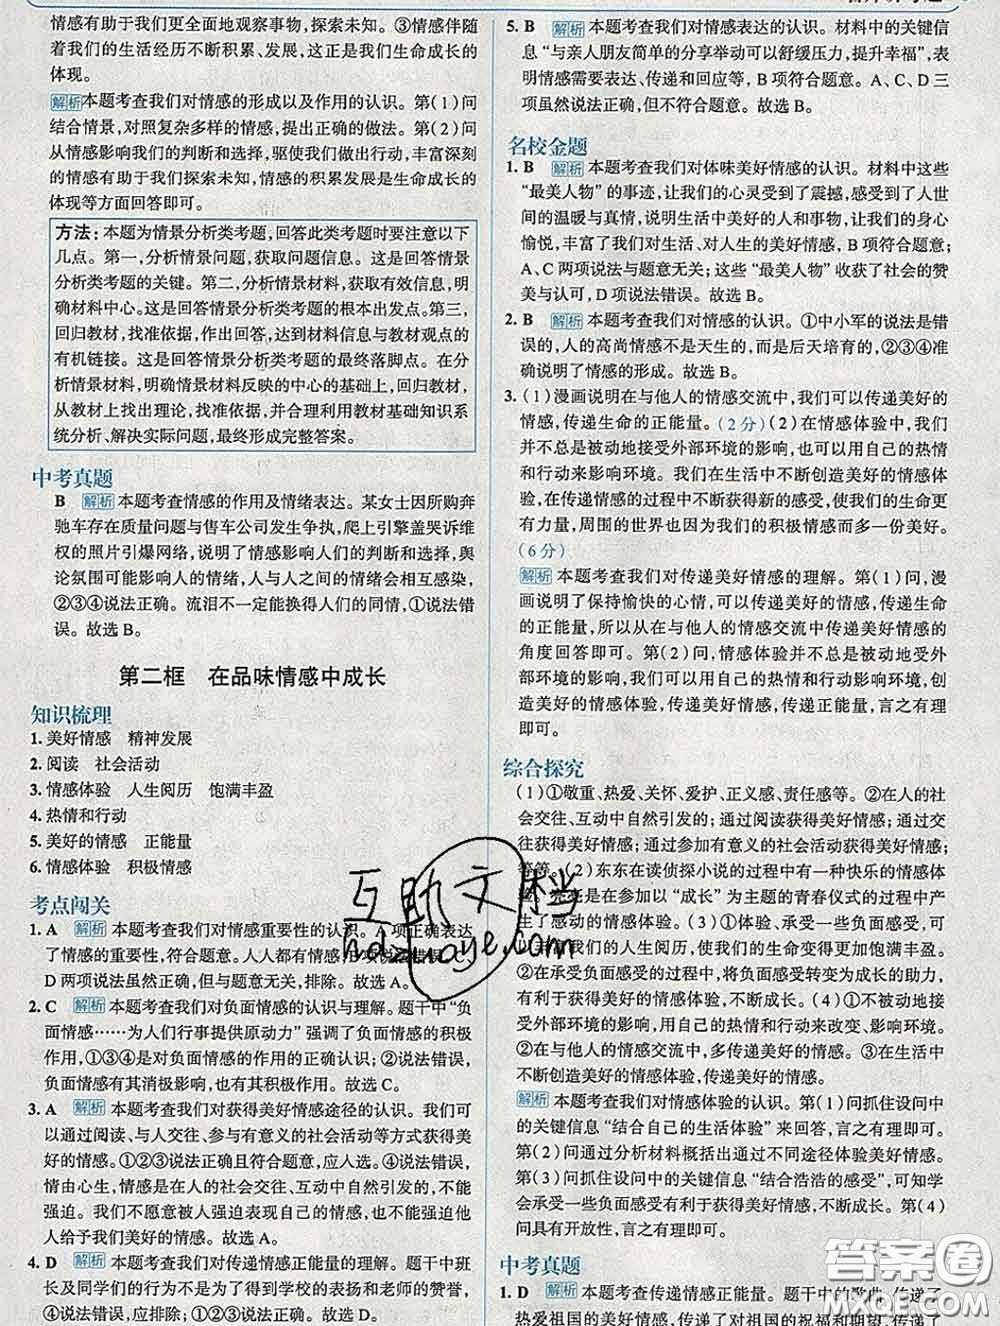 我们的情感有助于我们更全面地观察事物，探索未知。③情感伴随
着我们的生活经历不断积累、发展，这正是我们生命成长的
体现。
解析 本题考查我们对情感的形成以及作用的认识。第（1）问
结合情景，对照复杂多样的情感，提出正确的做法。第（2）问
从情感影响我们的判断和选择，驱使我们做出行动，丰富深刻
的情感有助于我们探索未知，情感的积累发展是生命成长的
体现等方面回答即可。
方法：本题为情景分析类考题，回答此类考题时要注意以下
几点。第一，分析情景问题，获取问题信息。这是回答情景
分析类考题的关键。第二，分析情景材料，获取有效信息，明
确材料中心。这是回答情景分析类考题的根本出发点。第三，
回归教材，找准依据，作出回答，达到材料信息与教材观点的
有机链接。这是回答情景分析类考题的最终落脚点。在分
析情景材料，明确情景材料反映的中心的基础上，回归教材，
从教材上找出理论，找准依据，并合理利用教材基础知识系
统分析、解决实际问题，最终形成完整答案。
中考真题
B 解析 本题考查情感的作用及情绪表达。某女士因所购奔
驰车存在质量问题与售车公司发生争执，爬上引擎盖哭诉维
权的照片引爆网络，说明了情感影响人们的判断和选择，舆
论氛围可能影响人的情绪，人与人之间的情绪会相互感染，
②③④说法正确。流泪不一定能换得人们的同情，①说法错
误。故选 B。
第二框 在品味情感中成长
知识梳理
1. 美好情感 精神发展
2. 阅读 社会活动
3. 情感体验 人生阅历 饱满丰盈
4. 热情和行动
5. 美好的情感 正能量
6. 情感体验 积极情感
考点闯关
1. A 解析 本题考查我们对情感重要性的认识。A 项正确表达
了情感的重要性，符合题意。人人都有情感，B 项说法错误。C、
D 两项说法虽然正确，但与题意无关，排除。故选 A。
2. C 解析 本题考查我们对负面情感的认识与理解。题干中“负
面情感……为人们行事提供原动力”强调了负面情感的积极
作用，①③④是对负面情感的作用的正确认识；②说法错误，
负面情感有其消极影响，也有其积极作用。故选 C。
3. A 解析 本题考查我们对获得美好情感途径的认识。我们可
以通过阅读、与人交往、参与有意义的社会活动等方式获得美
好的情感。①②③说法正确且符合题意，应入选。④说法错误，
情由心生，情感是在人的社会交往、互动中自然引发的，不能
强迫。我们不愿意被人强迫表现自己的情感，也不能强迫他
人给予我们美好的情感。故选 A。
4. D 解析 本题考查我们对传递情感正能量的理解。题干中班
长及同学们的行为不是为了得到学校的表扬和老师的赞誉，
④说法错误，应排除；①②③说法正确。故选 D。
5. B 解析 本题考查我们对情感表达的认识。材料中的关键信
息“与亲人朋友简单的分享举动可以舒缓压力，提升幸福”，表
明情感需要表达、传递和回应等，B 项符合题意。A、C、D 三
项虽然说法正确，但不符合题意。故选 B。
名校金题
1. B 解析 本题考查我们对体味美好情感的认识。材料中这些
“最美人物”的事迹，让我们的心灵受到了震撼，感受到了人世
间的温暖与真情，说明生活中美好的人和事物，让我们的身心
愉悦，丰富了我们对生活、对人生的美好情感，B 项符合题意；
A、C 两项说法与题意无关；这些“最美人物”收获了社会的赞
美与认可，D 项说法错误。故选 B。
2. B 解析 本题考查我们对情感的认识。①中小军的说法是错
误的，人的高尚情感不是天生的，而是后天培育的，②③④准
确说明了情感的形成。故选 B。
3.（1）漫画说明在与他人的情感交流中，我们可以传递美好的
情感，传递生命的正能量。（2分）（2）在情感体验中，我们
并不总是被动地接受外部环境的影响，也可以用自己的热情
和行动来影响环境。我们在生活中不断创造美好的情感体
验，在传递情感的过程中不断获得新的感受，使我们的生命更
有力量，周围的世界也因为我们的积极情感而多一份美好。
（6分）
解析 本题考查我们对传递美好情感的理解。第（1）问，漫
画说明了保持愉快的心情，可以传递美好的情感，传递生命
的正能量，所以从在与他人的情感交流中传递美好情感的
角度回答即可。第（2）问，情感体验并不总是被动地受外
部环境的影响，我们可以用自己的热情和行动影响环境，创
造美好的情感体验，传递美好情感，传递正能量，言之有理
即可。
综合探究
（1）①敬重、热爱、关怀、爱护、正义感、责任感等。②在人的社
会交往、互动中自然引发的；通过阅读获得美好情感；通过交
往获得美好情感；通过参加有意义的社会活动获得美好情感；
等等。（2）东东在读侦探小说的过程中有一种快乐的情感体
验。亮亮是在参加以“成长”为主题的青春仪式的过程中产
生了感动的情感体验。（3）①体验、承受一些负面感受，可
以丰富我们的人生阅历，使我们的生命变得更加饱满丰盈。
②在承受负面感受的过程中，将负面感受转变为成长的助力，
有利于获得美好的情感体验，不断成长。（4）①不被动地接
受外部环境的影响，用自己的热情和行动来改变、影响环境。
②在与他人的情感交流中，多传递美好的情感。③在生活中
不断创造美好的情感体验，传递美好的情感。
解析 本题考查我们对情感体验的认识。第（1）问抓住设问中
的关键信息“结合自己的生活体验”来回答，言之有理即可。
第（2）问通过分析材料概括出通过不同途径体验情感。
第（3）问抓住设问中的关键信息“结合浩浩的感受”，可知学
会承受一些负面感受有利于获得美好情感，不断成长。第（4）
问具有开放性，言之有理即可。
中考真题
1. D 解析 本题考查传递情感正能量。题干中的歌曲，传递了
热爱祖国的美好情感，传递了对祖国的祝福和期望，传递了
互助文档
hdzloye.com
答案圈
MXQE.COM